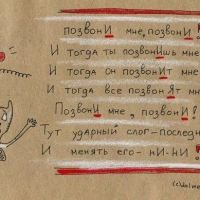 позвонИ мне, позвонИ!
И тогда ты позвонИшь мне
И тогда он позвонИт мне
И тогда все позвонЯт мне
ПозвонИ мне, позвонИ!
Тут ударный слог-последн
И менять его-нИ-нИ!